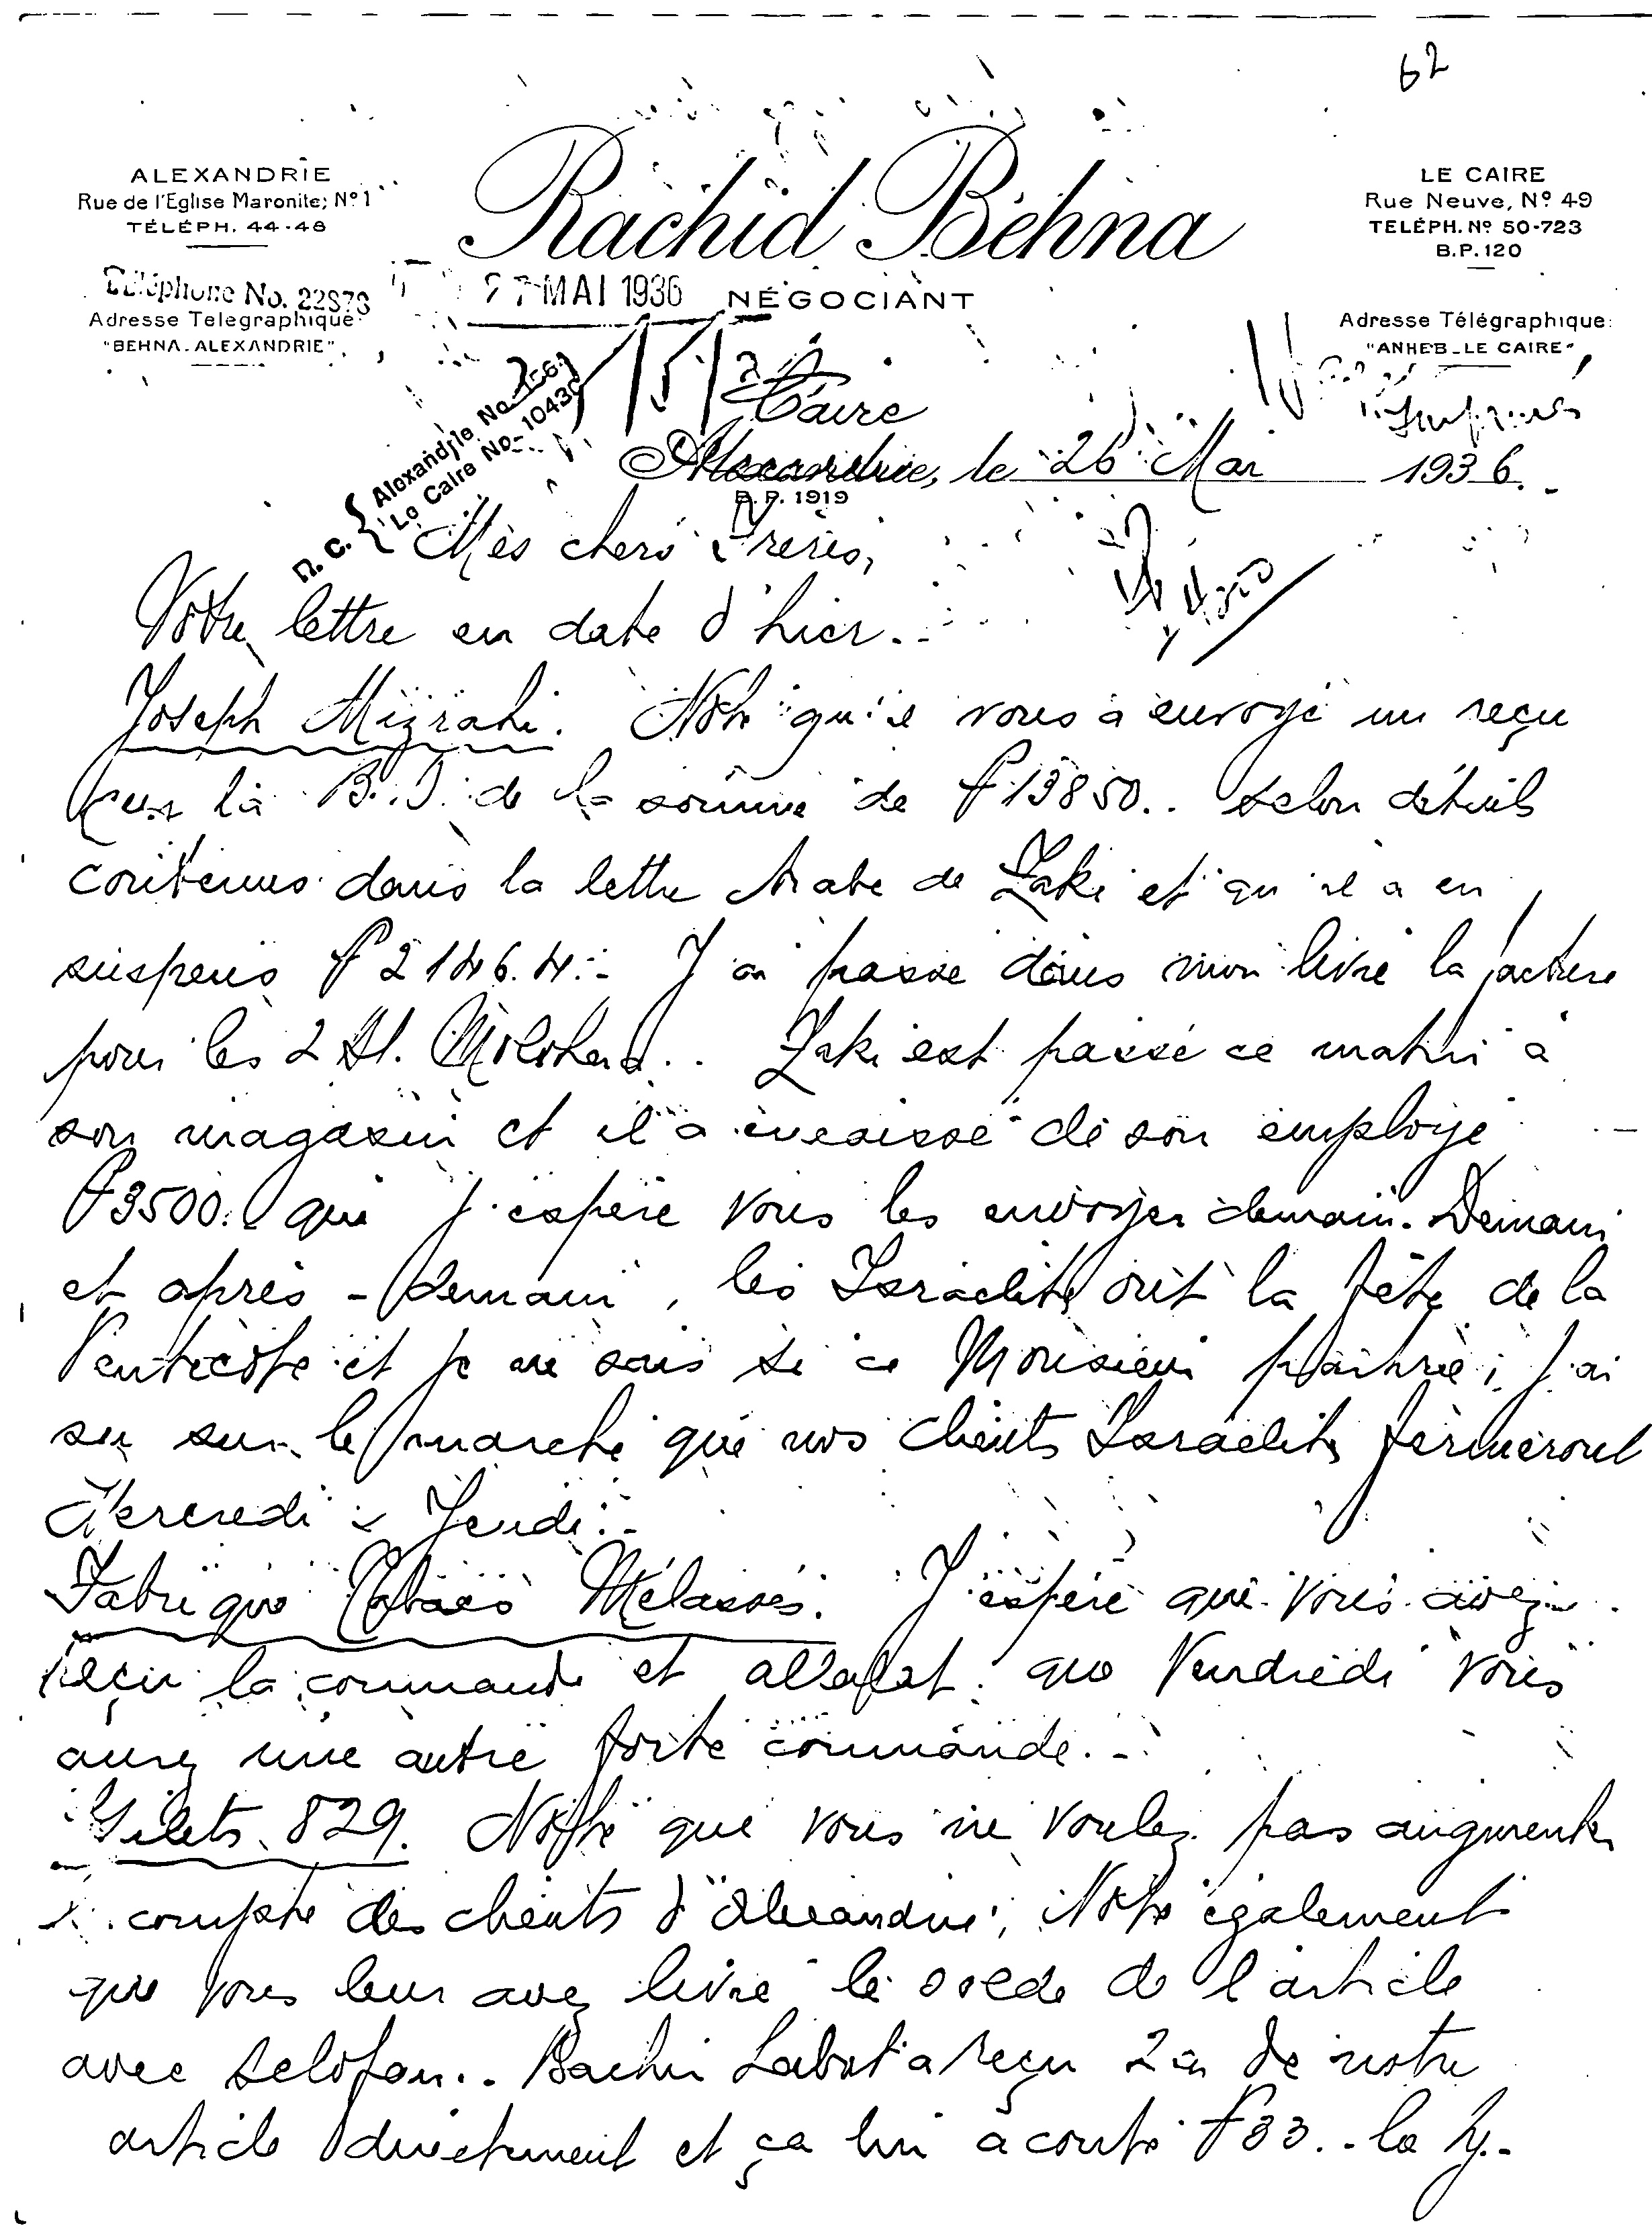 62
ALEXANDRIE
Rue de l'Eglise Maronite; Nº 1
TÉLÉPH. 44-48
Rachid Behna
LE CAIRE
Rue Neuve, Nº 49
TELÉPH. Nº 50-723
B.P. 120
Téléphone No. 22878
27 MAI 1936 NÉGOCIANT
Adresse Telegraphique
"BEHNA-ALEXANDRIE"
Adresse Télégraphique:
"ANHEB-LE CAIRE"
R. C. { Alexandrie No.
Le Caire No. 10430
Caire
Alexandrie, le 26 Mai 1936.
B. P. 1919
Mes chers Frères,
Votre lettre en date d'hier.
Joseph Mizrahi. Noté qu'il vous a envoyé un reçu
sur la B.I. de la somme de P13850.. selon détails
contenus dans la lettre Arabe de Zaki et qu'il a en
suspens P2146.4.- J'ai passé dans mon livre la facture
pour les 2 Bl. Molohend.. Zaki est passé ce matin à
son magasin et il a encaissé de son employé
P3500. que j'espère vous les envoyer demain. Demain
et après-demain, les Israelites ont la fête de la
Pentecôte et je ne sais si ce Monsieur paîtra; j'ai
su sur le marché que nos clients Israélites fermeront
Mercredi & Jeudi.-
Fabrique Tabacs Mélasses. J'espère que vous avez
reçu la commande et que Vendredi vous
aurez une autre forte commande.-
Gilets 829. Noté que vous ne voulez pas augmenter
compte des clients d'Alexandrie; Noté également
que vous leur avez livré le solde de l'article
avec selofan.. Bachir Labat a reçu 2 de notre
article directement et ça lui a couté P33.- la